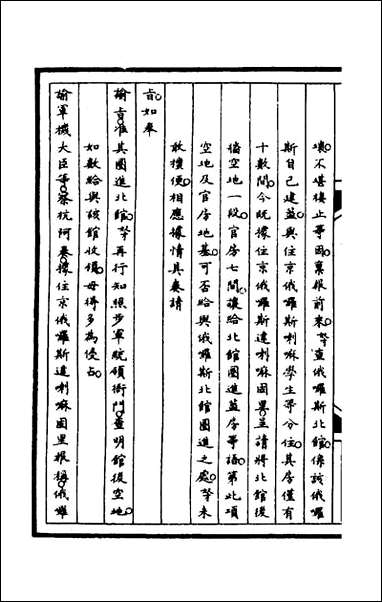 壞不堪棲止等因稟報前來等查俄羅斯北館係該俄羅
斯自己建蓋與住京俄羅斯喇嘛學生等分住其房僅有
十數間今既據住京俄羅斯達喇嘛固里呈請將北館後
偹空地一段官房七間讓給北館圈進蓋房等語第此項
空地及官房地基可否給與俄羅斯北館圈進之處等未
敢擅便相應據情具奏請
旨如奉
諭旨准其圈進北館等再行知照步軍統領衙門查明館後空地
如數給與該館收領毋得多為侵占
諭軍機大臣等蔡杭阿奏據住京俄羅斯達喇嘛固里報稱俄羅